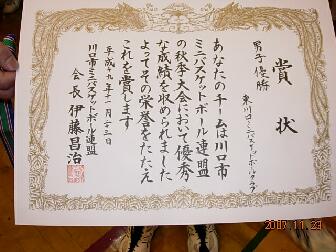 賞状
男子優勝
東川口ミニバスケットボールクラブ
あなたのチームは川口市
ミニバスケットボール連盟
の秋季大会において優秀
な成績を収められました
よってその栄誉をたたえ
これを賞します
平成十九年十一月二十三日
川口市ミニバスケットボール連盟
会長 伊藤昌治
2007.11.23